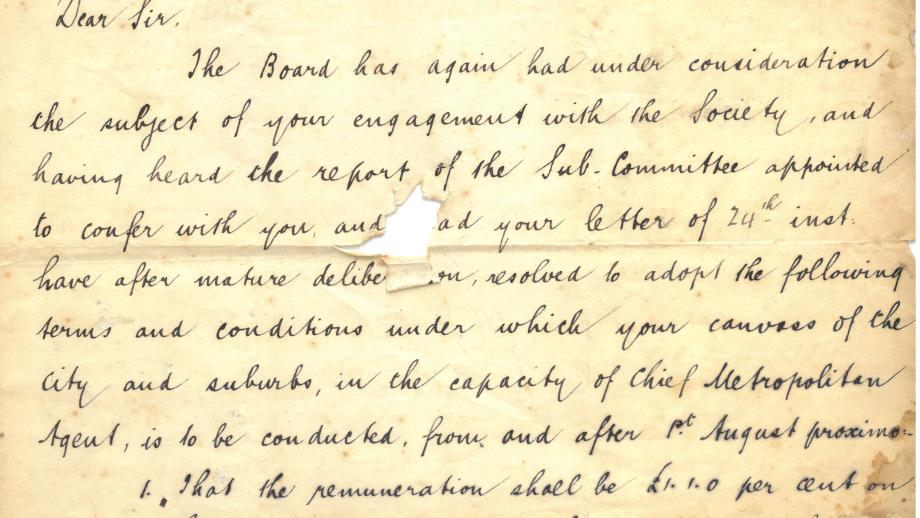 Dear Sir.
The Board has again had under consideration
the subject of your engagement with the Society, and
having heard the report of the Sub-Committee appointed
to confer with you, and ad your letter of 24th inst:
have after mature delibe on, resolved to adopt the following
terms and conditions under which your canvass of the
City and suburbs, in the capacity of Chief Metropolitan
Agent, is to be conducted, from and after 1st August proximo:-
1. That the remuneration shall be £1.1.0 per cent on